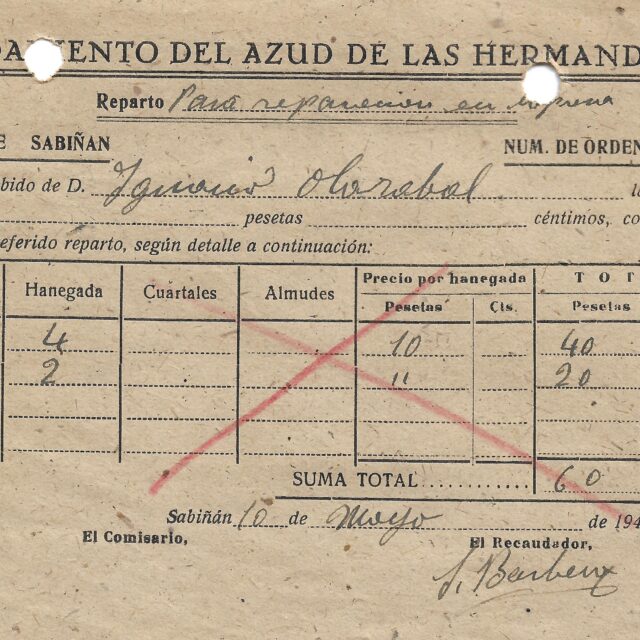 DAMIENTO DEL AZUD DE LAS HERMAND
Reparto Para reparacion en
E SABIÑAN NUM. DE ORDEN
bido de D. Ignacio Olarabal l
pesetas céntimos, co
eferido reparto, según detalle a continuación:
Hanegada Cuartales Almudes Precio por hanegada T O T
Pesetas Cts. Pesetas
4 10 40
2 " 20
SUMA TOTAL 60
Sabiñán 10 de Mayo de 194
El Comisario, El Recaudador,